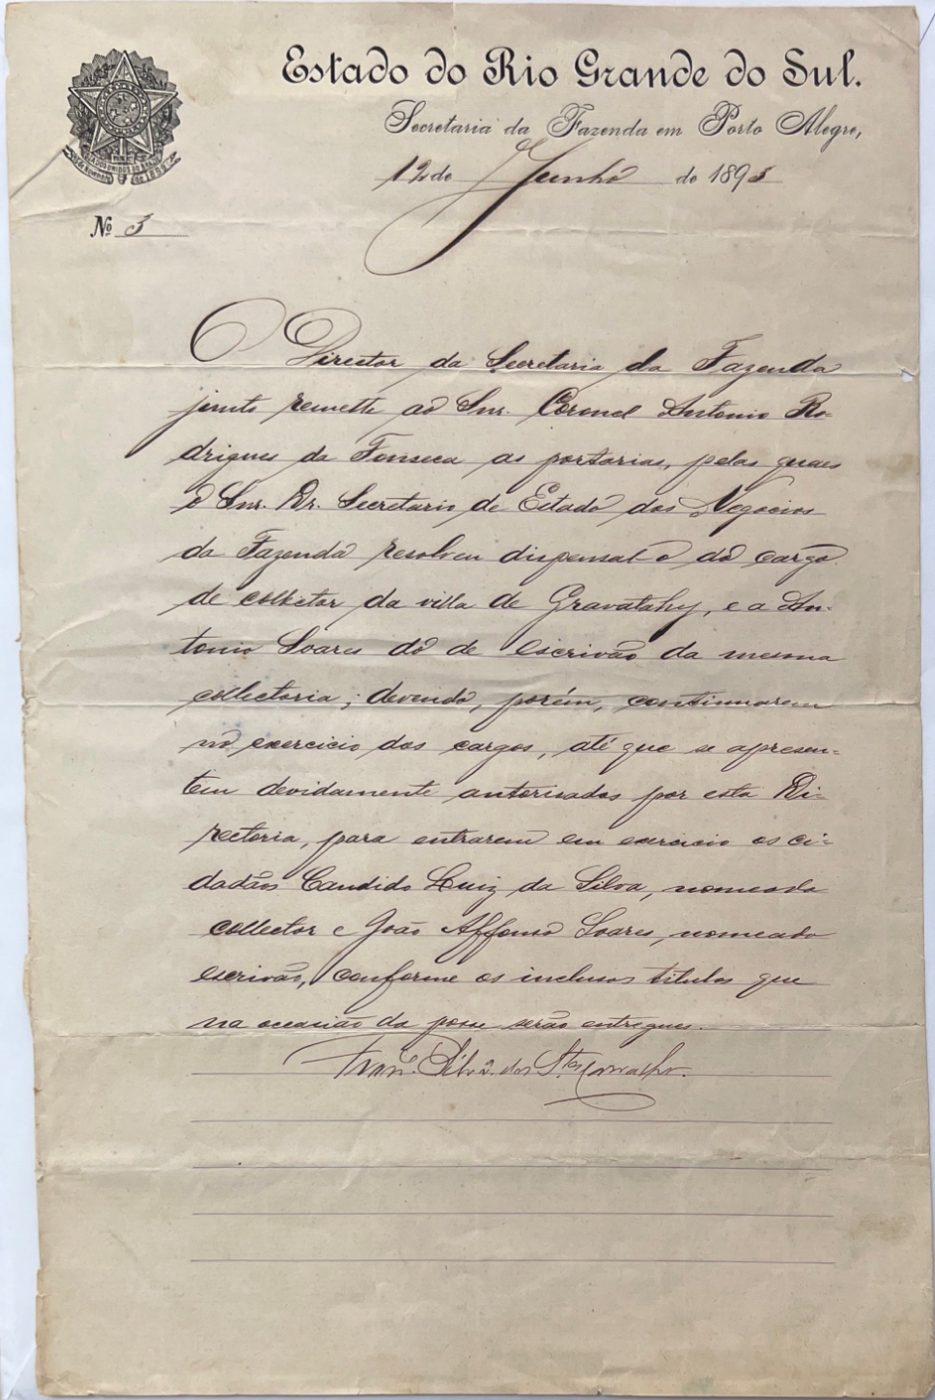 Estado do Rio Grande do Sul.
Secretaria da Fazenda em Porto Alegre,
12 de Junho de 1895
Nº 3
O Director da Secretaria da Fazenda
junto remette ao Snr. Coronel Antonio Ro-
drigues da Fonseca as portarias, pelas quaes
o Snr. Dr. Secretario de Estado dos Negocios
da Fazenda resolveu dispensal-o do cargo
de collector da villa de Gravatahy, e a An-
tonio Soares do de escrivão da mesma
collectoria; devendo, porém, continuarem
no exercicio dos cargos, até que se apresen-
tem devidamente autorisados por esta Di-
rectoria, para entrarem em exercicio os ci-
dadãos Candido Luiz da Silva, nomeado
collector e João Affonso Soares, nomeado
escrivão, conforme os inclusos titulos que
na occasião da posse serão entregues.
dos Stos Carvalho.